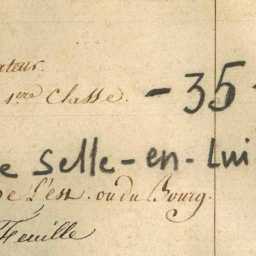 ateur.
1ère Classe. - 35 -
e Selle-en-Lui
de l'Est. ou du Bourg.
Feuille